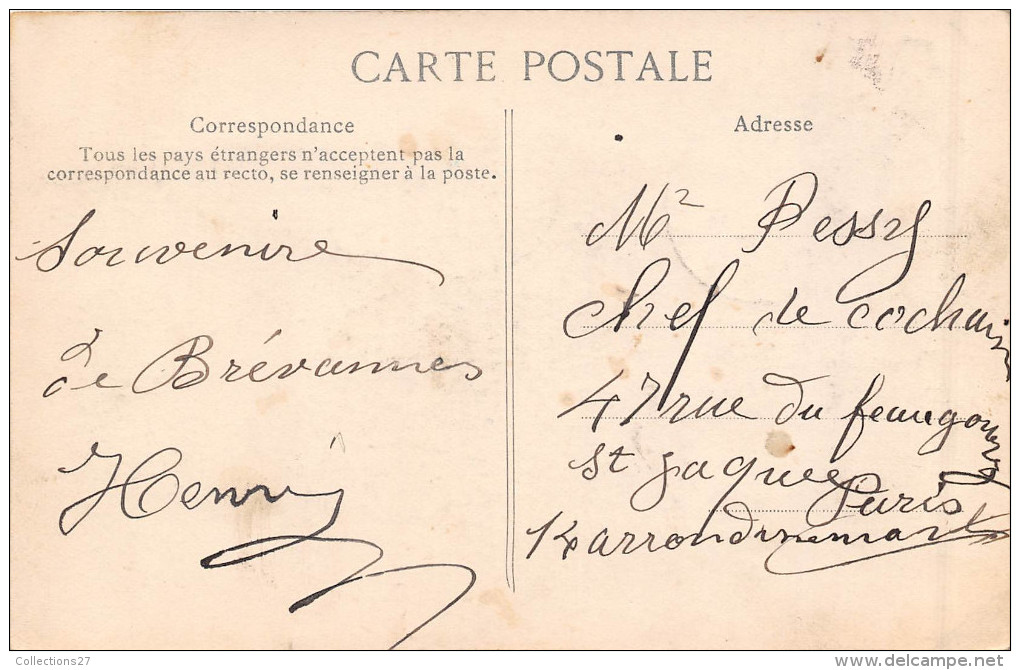 CARTE POSTALE
Correspondance
Tous les pays étrangers n'acceptent pas la
correspondance au recto, se renseigner à la poste.
Souvenire
de Brévannes
Henri
Adresse
Mr Pessy
Chef de cochain
47 rue du feaugourg
st jaques Paris
14 arrondinemant
Collections27
www.delcampe.net